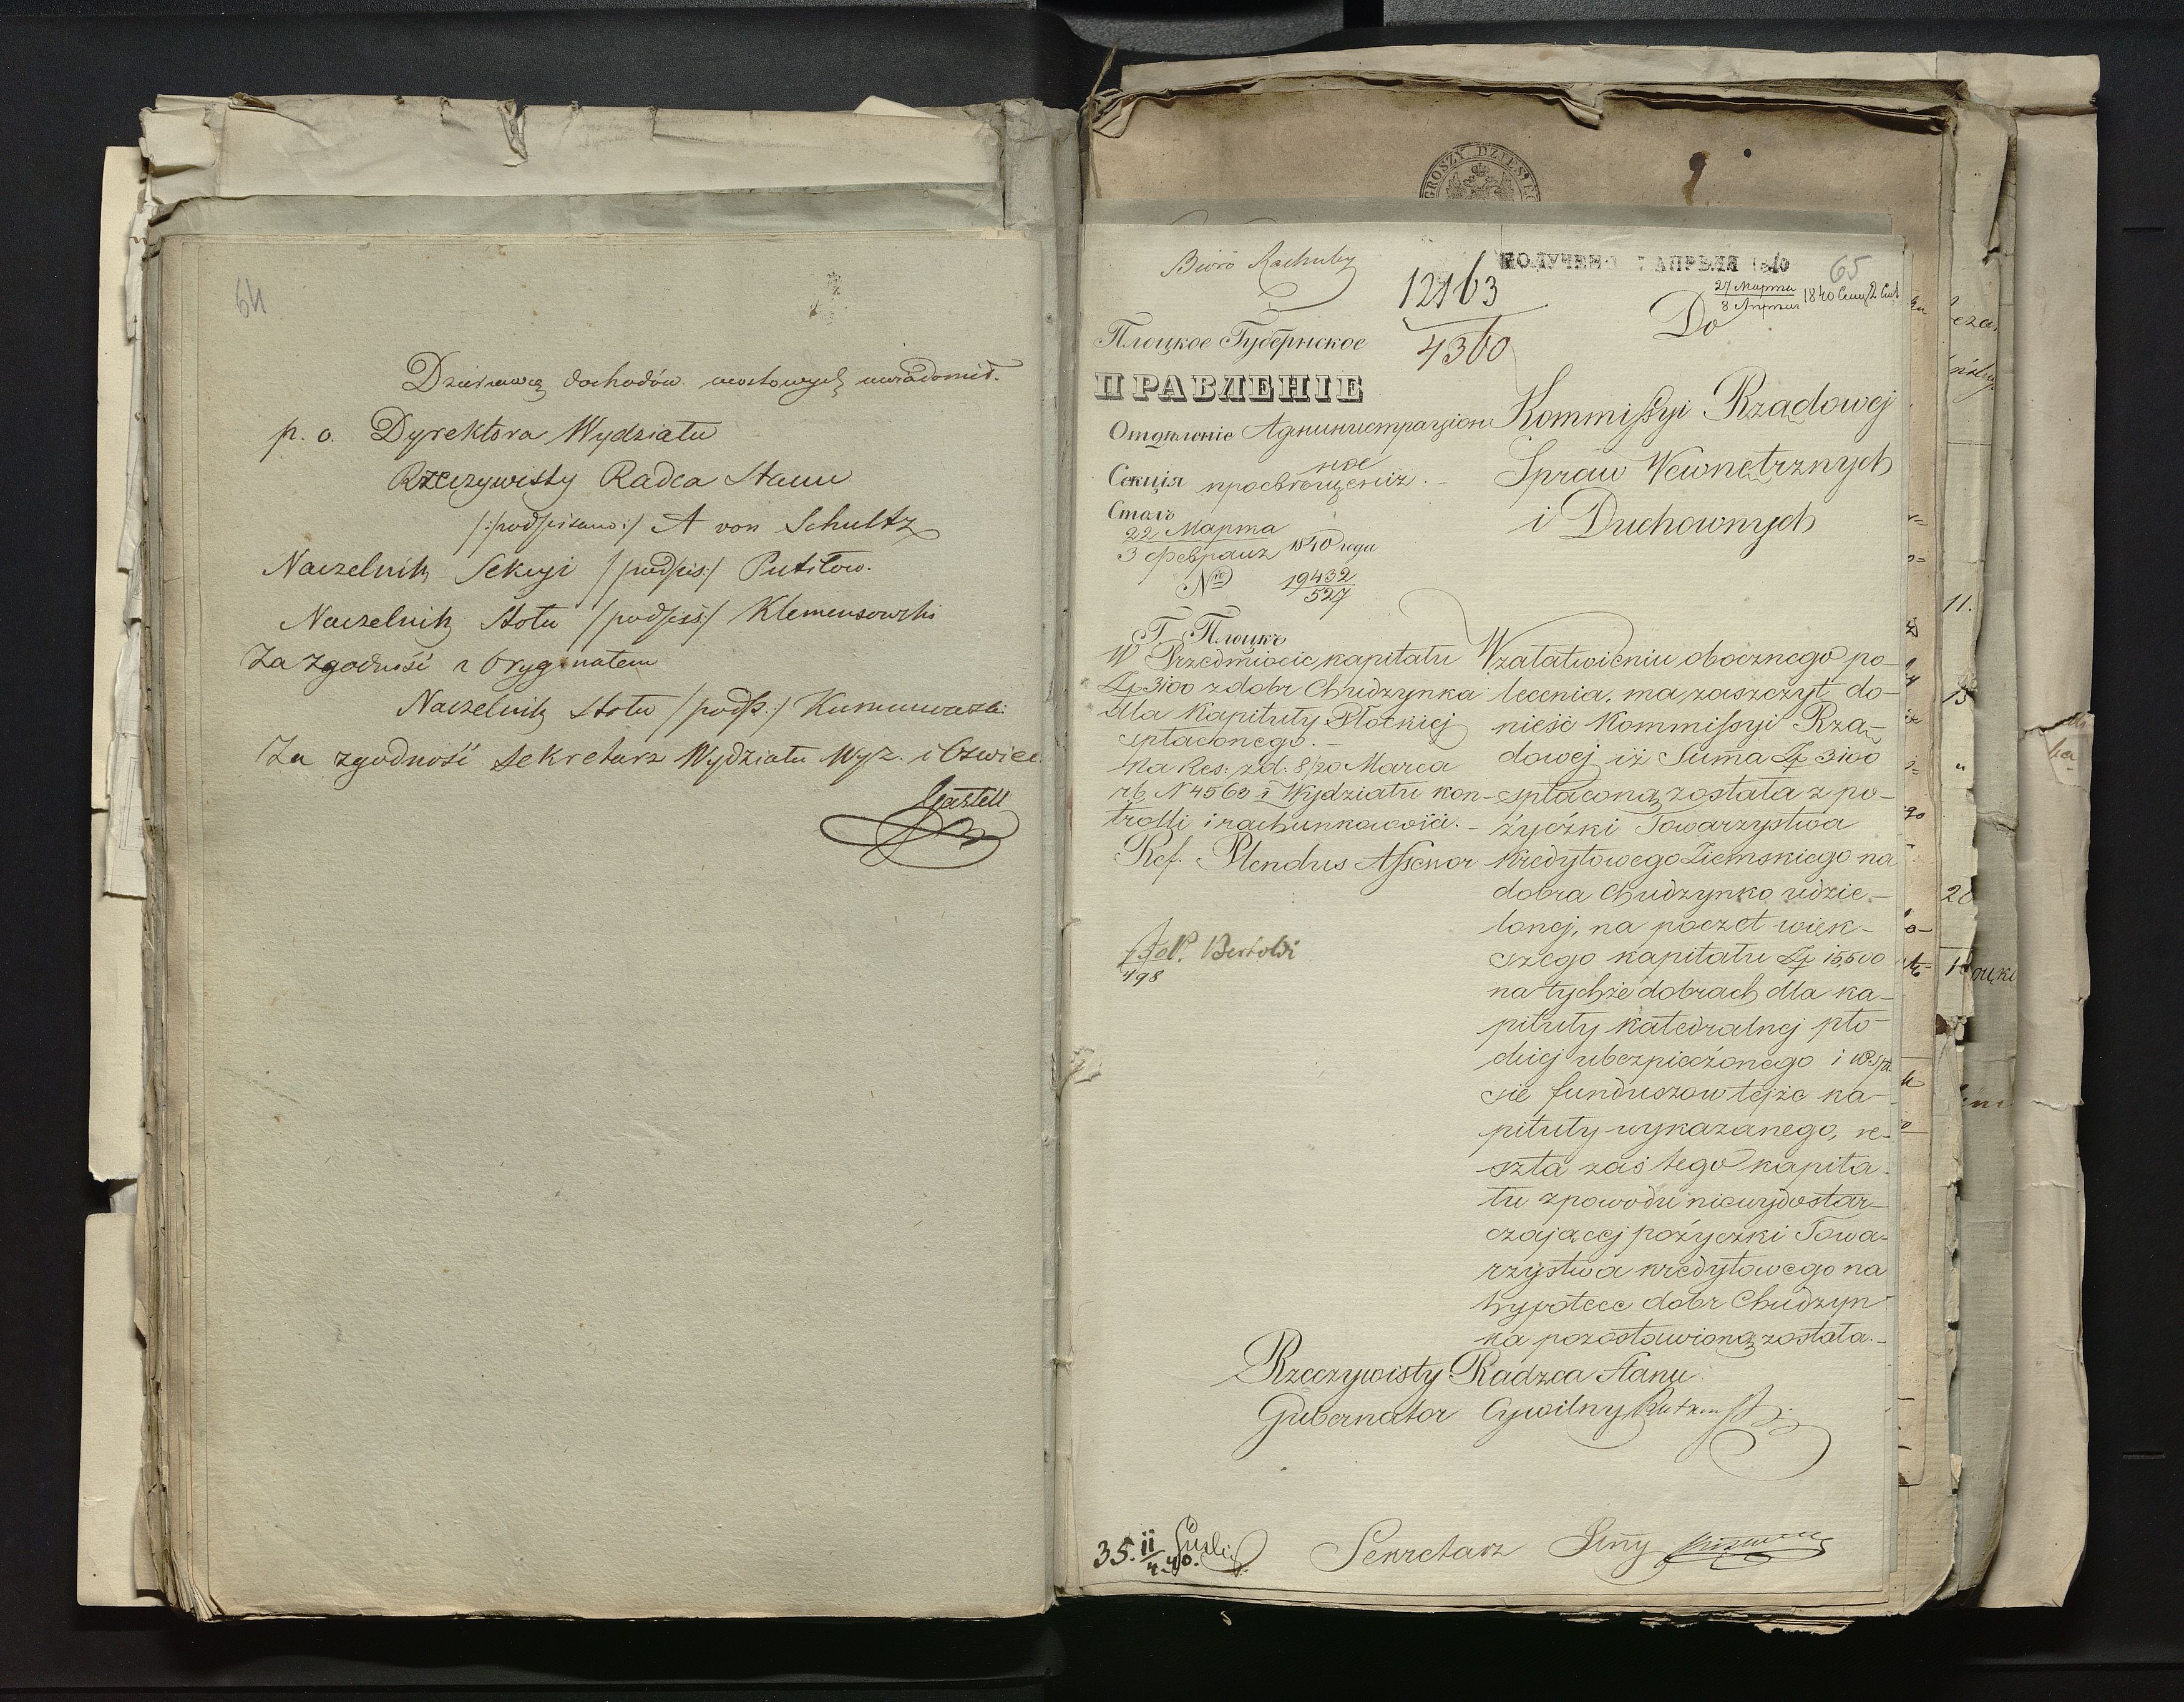 64
Dzierżawcą dochodów mostowych uwiadomił.
p. o. Dyrektora Wydziału
Rzeczywisty Radca Stanu
/:podpisano:/ A von Schultz
Naczelnik Sekcyi /podpis:/ Putiłow.
Naczelnik Stołu /podpis:/ Klemensowski
Za zgodność z Oryginałem
Naczelnik Stołu /podp:/
Za zgodność Sekretarz Wydziału Wyz. i Oświec.
GROSZY DZIESIĘ
Biuro Rachuby
12163
4360
ПОЛУЧЕНО АПРѢЛЯ 1840
65
27 Марта
8 Апрѣля 1840
Плоцкое Губернское
ПРАВЛЕНІЕ
Отдѣленіе Администрацiон
ное
Секція просвѣщенія.
Столъ
22 Марта
3 Февраля 1840 года
No 19432
527
Г. Плоцкъ
W Przedmiocie kapitału
Zp 3100 z dobr Chudzynka
dla Kapituły Płockiej
spłaconego.
Na Res: z d. 8/20 Marca
rb. N 4563 z Wydziału kon-
trolli i rachunkowości.
Ref. Plendus Assessor
Bertoldi
498
Do
Kommissyi Rządowej
Spraw Wewnętrznych
i Duchownych
W załatwieniu obocznego po-
lecenia, ma zaszczyt do-
nieść Kommissyi Rzą-
dowej iż Summa Zp 3100
spłaconą została z po-
życzki Towarzystwa
Kredytowego Ziemskiego na
dobra Chudzynko udzie-
loney, na poczet więk-
szego kapitału Zp 15,500
na tychże dobrach dla ka-
pituły katedralnej pło-
ckiej ubezpieczonego i w spi
sie funduszow tejże ka-
pituły wykazanego, re-
szta zaś tego kapita-
łu z powodu niewydostar-
czającej pożyczki Towa-
rzystwa kredytowego na
hypotece dobr Chudzyn
ka pozostawioną została.
Rzeczywisty Radzca Stanu
Gubernator Cywilny
35. 11/4 40.
Sekretarz Jlny